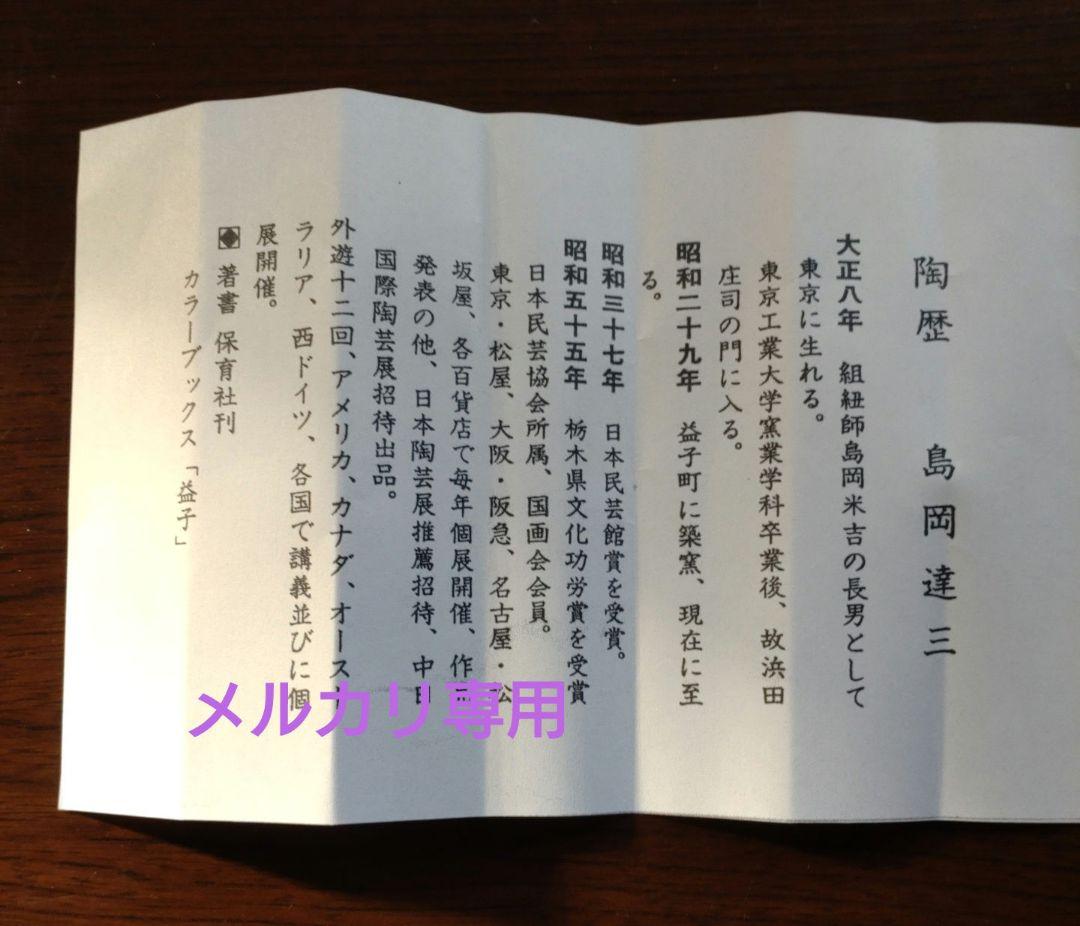 陶歴　島岡達三
大正八年　組紐師島岡米吉の長男として
東京に生れる。
東京工業大学窯業学科卒業後、故浜田
庄司の門に入る。
昭和二十九年　益子町に築窯、現在に至
る。
昭和三十七年　日本民芸館賞を受賞。
昭和五十五年　栃木県文化功労賞を受賞
日本民芸協会所属、国画会会員。
東京・松屋、大阪・阪急、名古屋・松
坂屋、各百貨店で毎年個展開催、作
発表の他、日本陶芸展推薦招待、中日
国際陶芸展招待出品。
外遊十二回、アメリカ、カナダ、オースト
ラリア、西ドイツ、各国で講義並びに個
展開催。
著書 保育社刊
カラーブックス「益子」
メルカリ専用